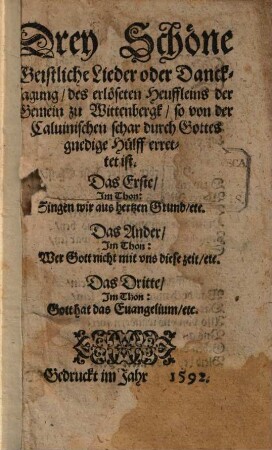 Drey Schöne
Geistliche Lieder oder Danck-
sagung / des erlöseten Heuffleins der
Gemein zu Wittenbergk / so von der
Caluinischen schar durch Gottes
gnedige Hülff erret-
tet ist.
Das Erste /
Im Thon:
Singen wir aus hertzen Grund / etc.
Das Ander /
Im Thon:
Wer Gott nicht mit vns diese zeit / etc.
Das Dritte /
Im Thon:
Gott hat das Euangelium / etc.
Gedruckt im Jahr 1592.